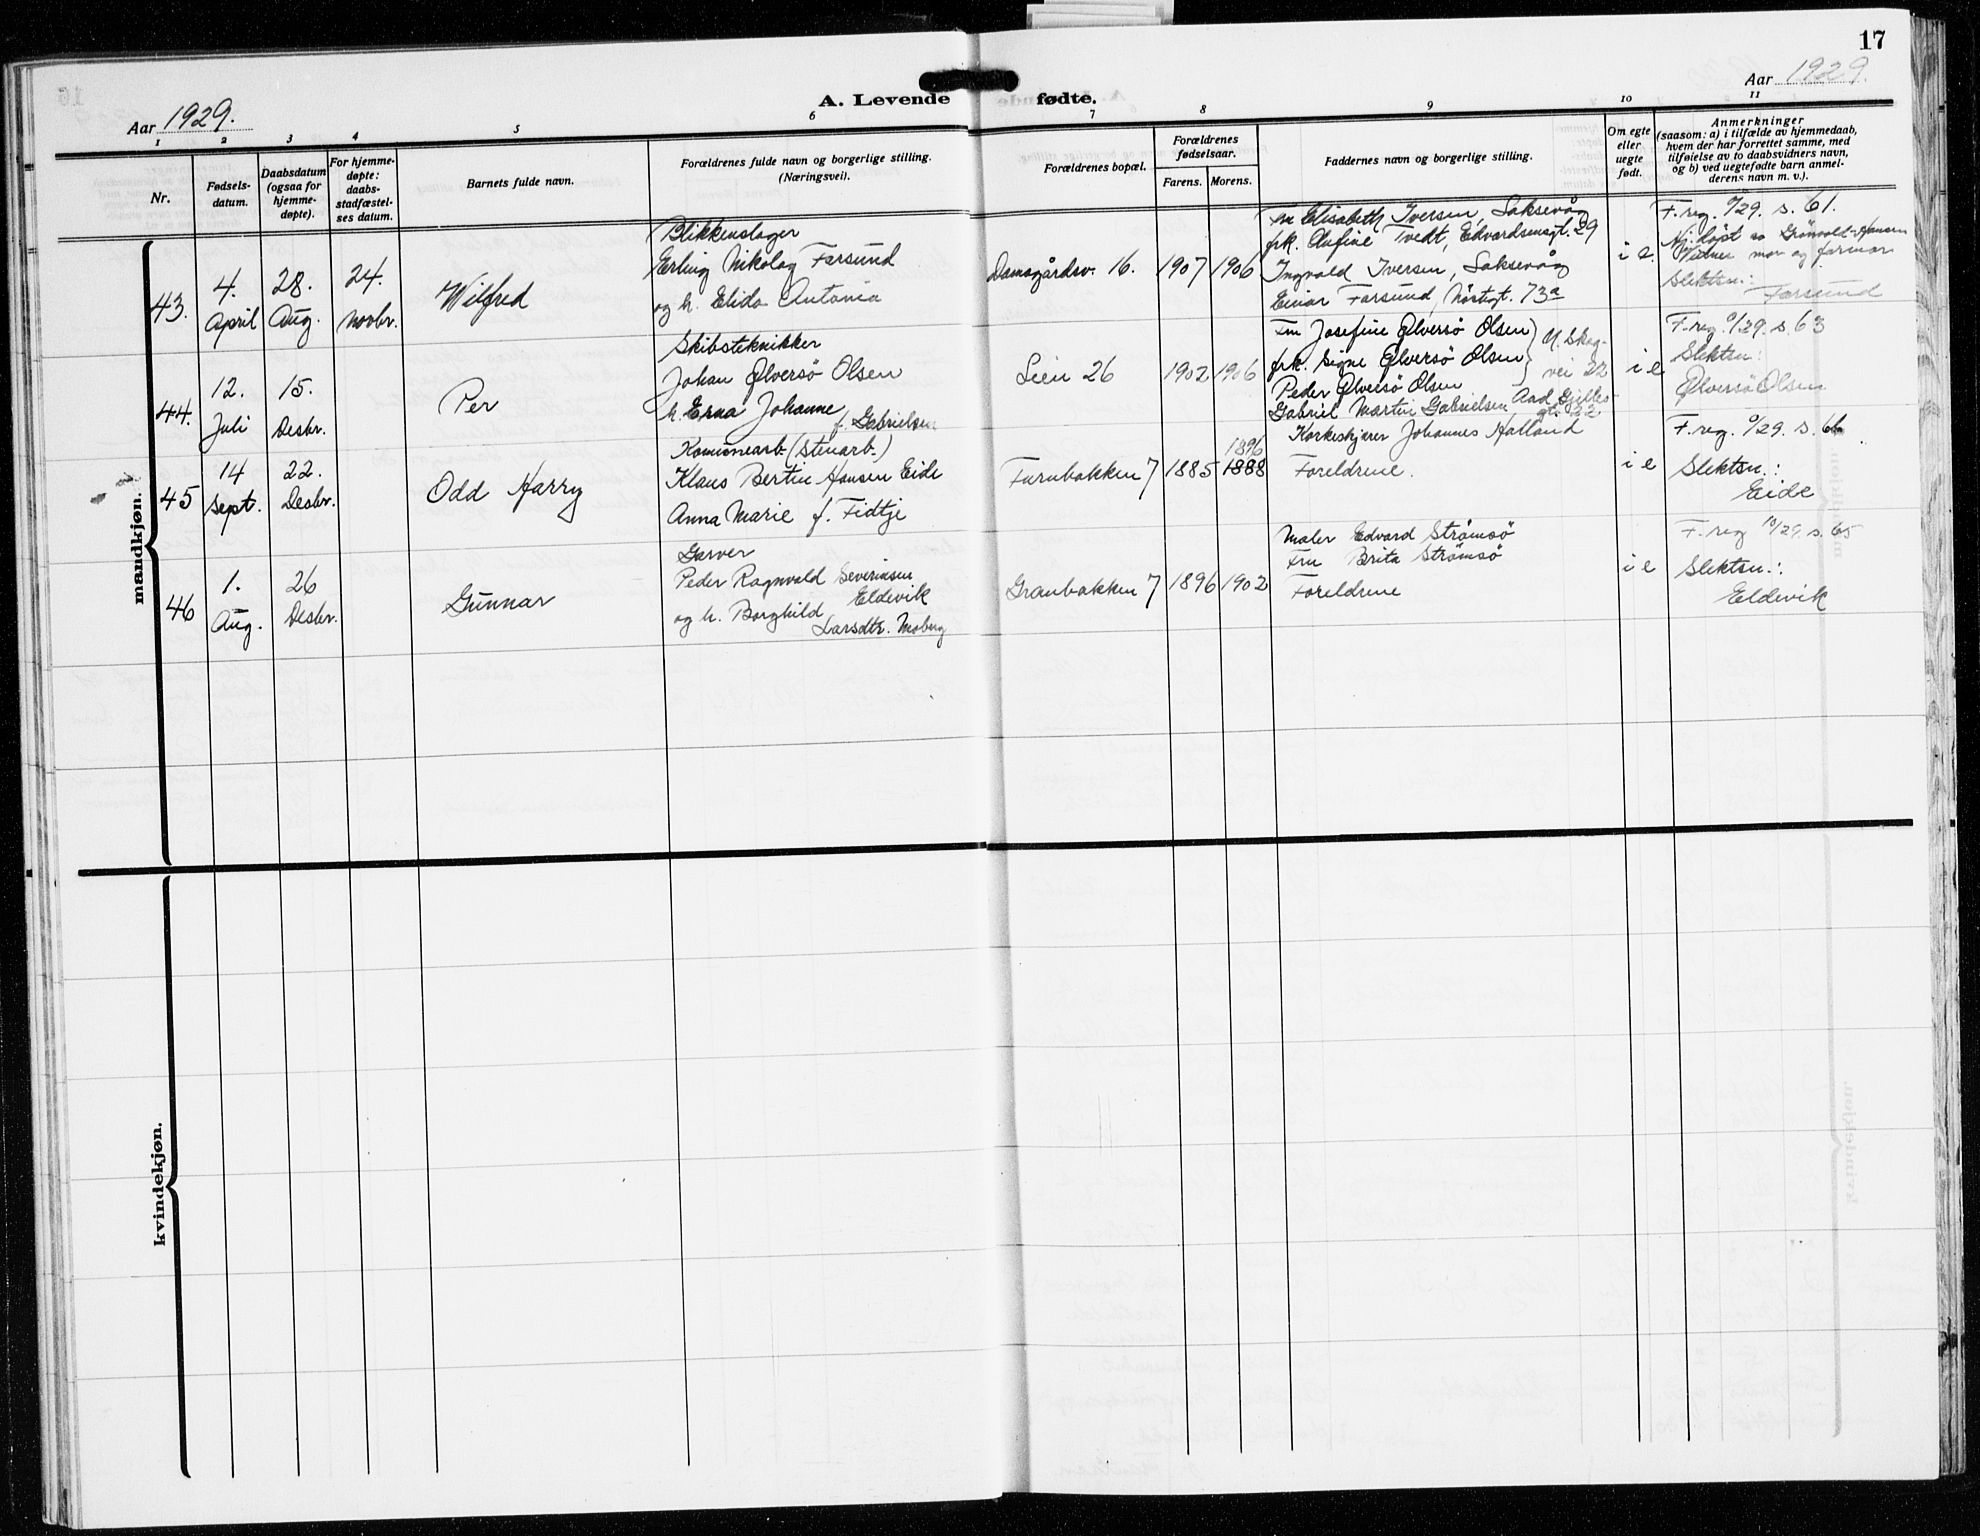 17
Aar 1929.
A. Levende fødte.
Aar 1929.
1 2 3 4 5 6 7 8 9 10 11
Nr.
Fødsels-
datum.
Daabsdatum
(ogsaa for
hjemme-
døpte).
For hjemme-
døpte:
daabs-
stadfæstel-
ses datum.
Barnets fulde navn.
Forældrenes fulde navn og borgerlige stilling.
(Næringsvei).
Forældrenes bopæl.
Forældrenes
fødselsaar.
Farens. Morens.
Faddernes navn og borgerlige stilling.
Om egte
eller
uegte
født.
Anmerkninger
(saasom: a) i tilfælde av hjemmedaab,
hvem der har forrettet samme, med
tilføielse av to daabsvidners navn,
og b) ved uegtefødte barn anmel-
derens navn m. v.).
mandkjøn.
43.
4.
April
28.
Aug.
24.
Novbr.
Wilfred
Blikkenslager
Erling Nikolay Farsund
og h. Elida Antonia
Damsgårdsv. 16.
1907 1906
Fru Elisabeth Iversen, Laksevåg
frk. Anfine Tvedt, Edvardsensgt. 29
Ingvald Iversen, Laksevåg
Einar Farsund, Nöstegt. 73a
i e.
F. reg. /29. s. 61.
Hj. döpt av Grönvold-Hansen
Vidner mor og farmor
Slektsn.:
Farsund
44.
12.
Juli
15.
Desbr.
Per
Skibsteknikker
Johan Ølversö Olsen
h. Erna Johanne f. Gabrielsen
Lien 26
1902 1906
Fru Josefine Ølversö Olsen
frk. Signe Ølversö Olsen
N. Skog-
vei 22
Peder Ølversö Olsen
Gabriel Martin Gabrielsen, Aad Gjelles-
gt. 22
i e
F. reg. /29. s. 63
Slektsn:
Ølversö Olsen
45
14
Sept.
22.
Desbr.
Odd Harry
Komunearb. (Stenarb.)
Klaus Bertin Hansen Eide
Anna Marie f. Fidtje
Furubakken 7
1885 1888
1896
Korkeskjærer Johannes Hatland
Foreldrene.
i e
F. reg. /29. s. 66
Slektsn.:
Eide
46
1.
Aug.
26
Desbr.
Gunnar
Garver
Peder Ragnvald Severinsen
Eldevik
og h. Borghild
Larsdtr. Moberg
Granbakken 7
1896 1902
Maler Edvard Strömsö
Fru Brita Strömsö
Foreldrene
i e
F. reg 10/29. s. 65
Slektsn.:
Eldevik
kvindekjøn.